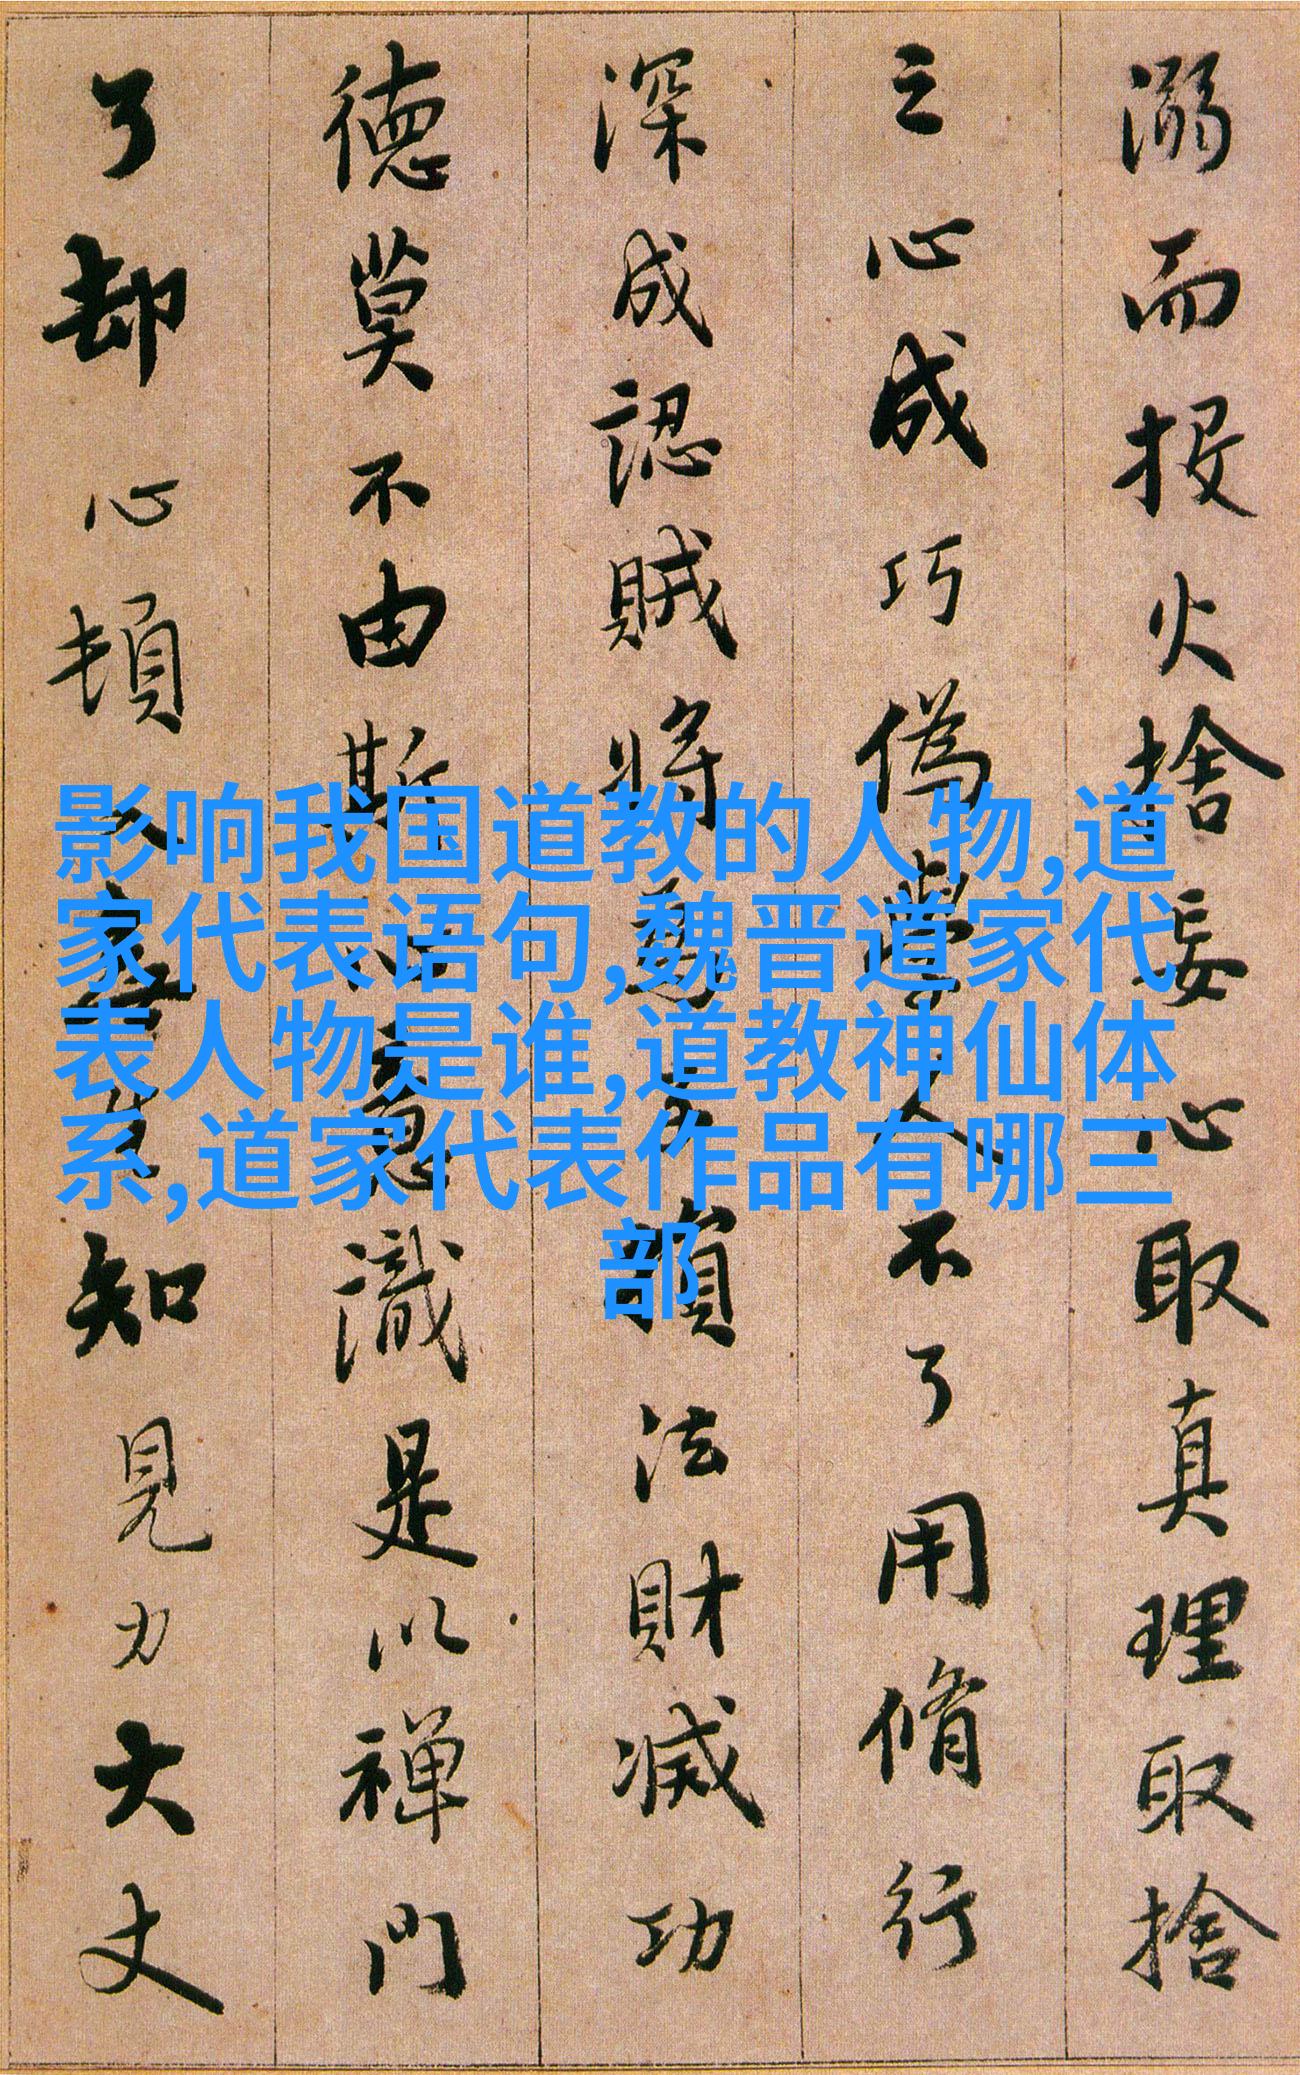 影响我国道教的人物,道
家代表语句,魏晋道家代
表人物是谁,道教神仙体
系,道家代表作品有哪三
部
溺而投火捨妄心取真理取捨
之心成巧偽學人不了用脩行
深成認賊將為子損法財滅功
德莫不由斯心意識是以禪門
了却心頓入無生知見力大丈